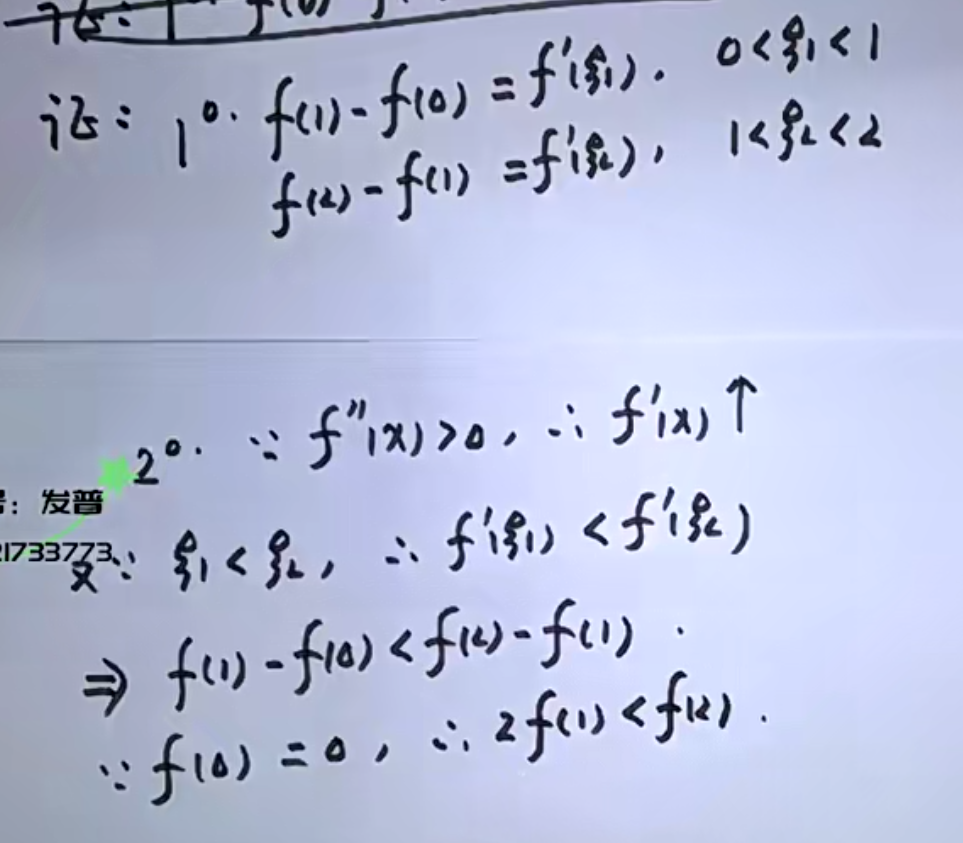 证: 1°. f(1) - f(0) = f'(ξ₁). 0<ξ₁<1
f(2) - f(1) = f'(ξ₂), 1<ξ₂<2
2°. ∵ f''(x)>0, ∴ f'(x)↑
号: 发普
21733773
又∵ ξ₁<ξ₂, ∴ f'(ξ₁) < f'(ξ₂)
⇒ f(1) - f(0) < f(2) - f(1).
∵ f(0) = 0, ∴ 2f(1) < f(2).